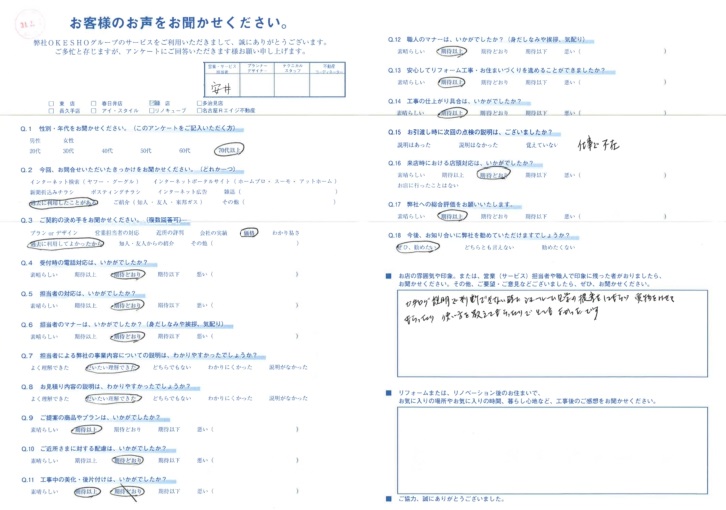 お客様のお声をお聞かせください。
弊社OKESHOグループのサービスをご利用いただきまして、誠にありがとうございます。
ご多忙と存じますが、アンケートにご回答いただきます様お願い申し上げます。
営業・サービス担当者 プランナー デザイナー テクニカルスタッフ 不動産コーディネーター
安井
□ 東 店 □ 春日井店 店 □ 多治見店
□ 長久手店 □ アイ・スタイル □ リノキューブ □ 名古屋Hエイジ不動産
Q.1 性別・年代をお聞かせください。(このアンケートをご記入いただく方)
男性 女性
20代 30代 40代 50代 60代 70代以上
Q.2 今回、お問合せいただいたきっかけをお聞かせください。(どれか一つ)
インターネット検索(ヤフー・グーグル) インターネットポータルサイト(ホームプロ・スーモ・アットホーム)
新聞折込みチラシ ポスティングチラシ インターネット広告 雑誌( )
過去に利用したことがある ご紹介(知人・友人・東邦ガス) その他( )
Q.3 ご契約の決め手をお聞かせください。(複数回答可)
プラン or デザイン 営業担当者の対応 近所の評判 会社の実績 価格 わかり易さ
過去に利用してよかったから 知人・友人からの紹介 その他( )
Q.4 受付時の電話対応は、いかがでしたか?
素晴らしい 期待以上 期待どおり 期待以下 悪い( )
Q.5 担当者の対応は、いかがでしたか?
素晴らしい 期待以上 期待どおり 期待以下 悪い( )
Q.6 担当者のマナーは、いかがでしたか?(身だしなみや挨拶、気配り)
素晴らしい 期待以上 期待どおり 期待以下 悪い( )
Q.7 担当者による弊社の事業内容についての説明は、わかりやすかったでしょうか?
よく理解できた だいたい理解できた どちらでもない わかりにくかった 説明がなかった
Q.8 お見積り内容の説明は、わかりやすかったでしょうか?
よく理解できた だいたい理解できた どちらでもない わかりにくかった 説明がなかった
Q.9 ご提案の商品やプランは、いかがでしたか?
素晴らしい 期待以上 期待どおり 期待以下 悪い( )
Q.10 ご近所さまに対する配慮は、いかがでしたか?
素晴らしい 期待以上 期待どおり 期待以下 悪い( )
Q.11 工事中の美化・後片付けは、いかがでしたか?
素晴らしい 期待以上 期待どおり 期待以下 悪い( )
Q.12 職人のマナーは、いかがでしたか?(身だしなみや挨拶、気配り)
素晴らしい 期待以上 期待どおり 期待以下 悪い( )
Q.13 安心してリフォーム工事・お住まいづくりを進めることができましたか?
素晴らしい 期待以上 期待どおり 期待以下 悪い( )
Q.14 工事の仕上がり具合は、いかがでしたか?
素晴らしい 期待以上 期待どおり 期待以下 悪い( )
Q.15 お引渡し時に次回の点検の説明は、ございましたか?
説明はあった 説明はなかった 覚えていない 仕事で不在
Q.16 来店時における店頭対応は、いかがでしたか?
素晴らしい 期待以上 期待どおり 期待以下 悪い( )
お店に行ったことはない
Q.17 弊社への総合評価をお願いします。
素晴らしい 期待以上 期待どおり 期待以下 悪い( )
Q.18 今後、お知り合いに弊社を勧めていただけますでしょうか?
ぜひ、勧めたい どちらとも言えない 勧めたくない
■ お店の雰囲気や印象、または、営業(サービス)担当者や職人で印象に残った者がおりましたら、
お聞かせください。その他、ご要望・ご意見などございましたら、ぜひ、お聞かせください。
カタログ説明で判断できない
使い方を教えて
■ リフォームまたは、リノベーション後のお住まいで、
お気に入りの場所やお気に入りの時間、暮らし心地など、工事後のご感想をお聞かせください。
■ ご協力、誠にありがとうございました。